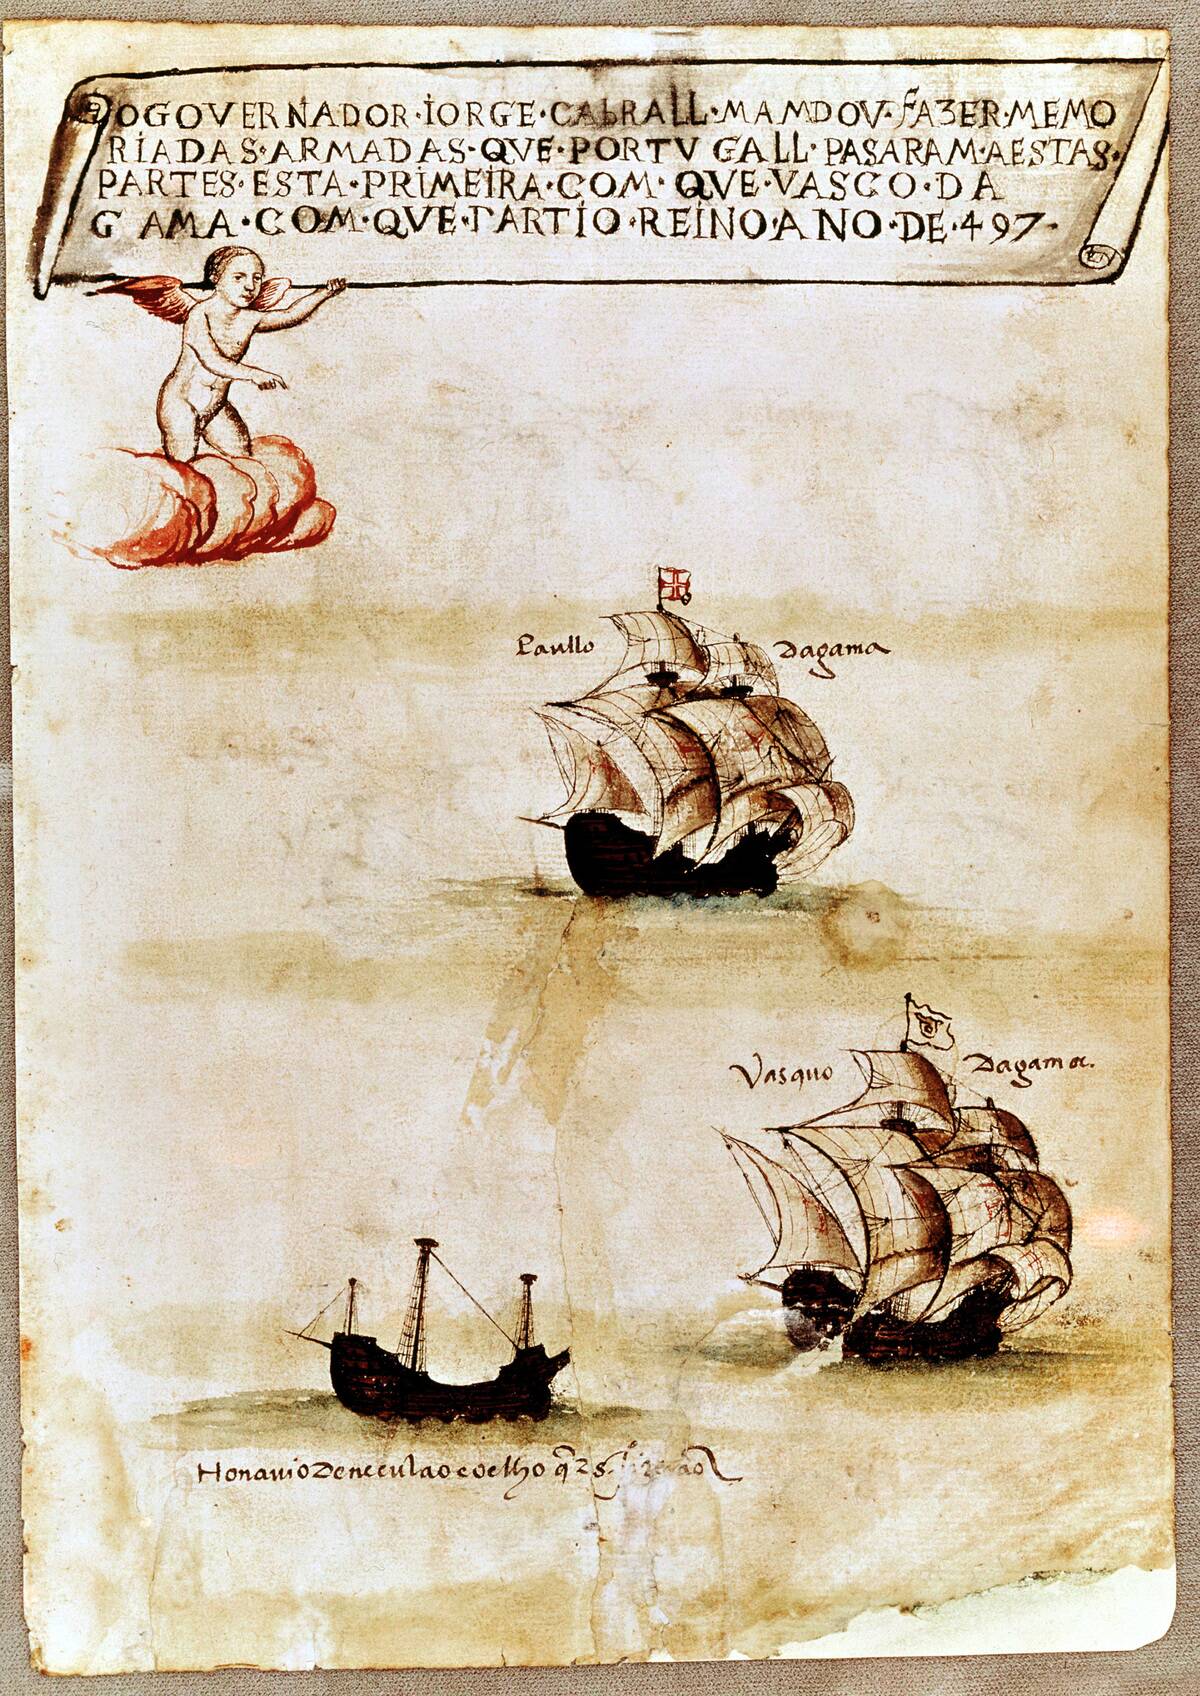 OGOVERNADOR·IORGE·CABRALL·MAMDOV·FA3ER·MEMO
RIADAS·ARMADAS·QVE·PORTVGALL·PASARAM·AESTAS·
PARTES·ESTA·PRIMEIRA·COM·QVE·VASCO·DA
GAMA·COM·QVE·PARTIO·REINO·ANO·DE·497·
Paullo Dagama
Vasquo Dagama.
Honauio De neculao coelho